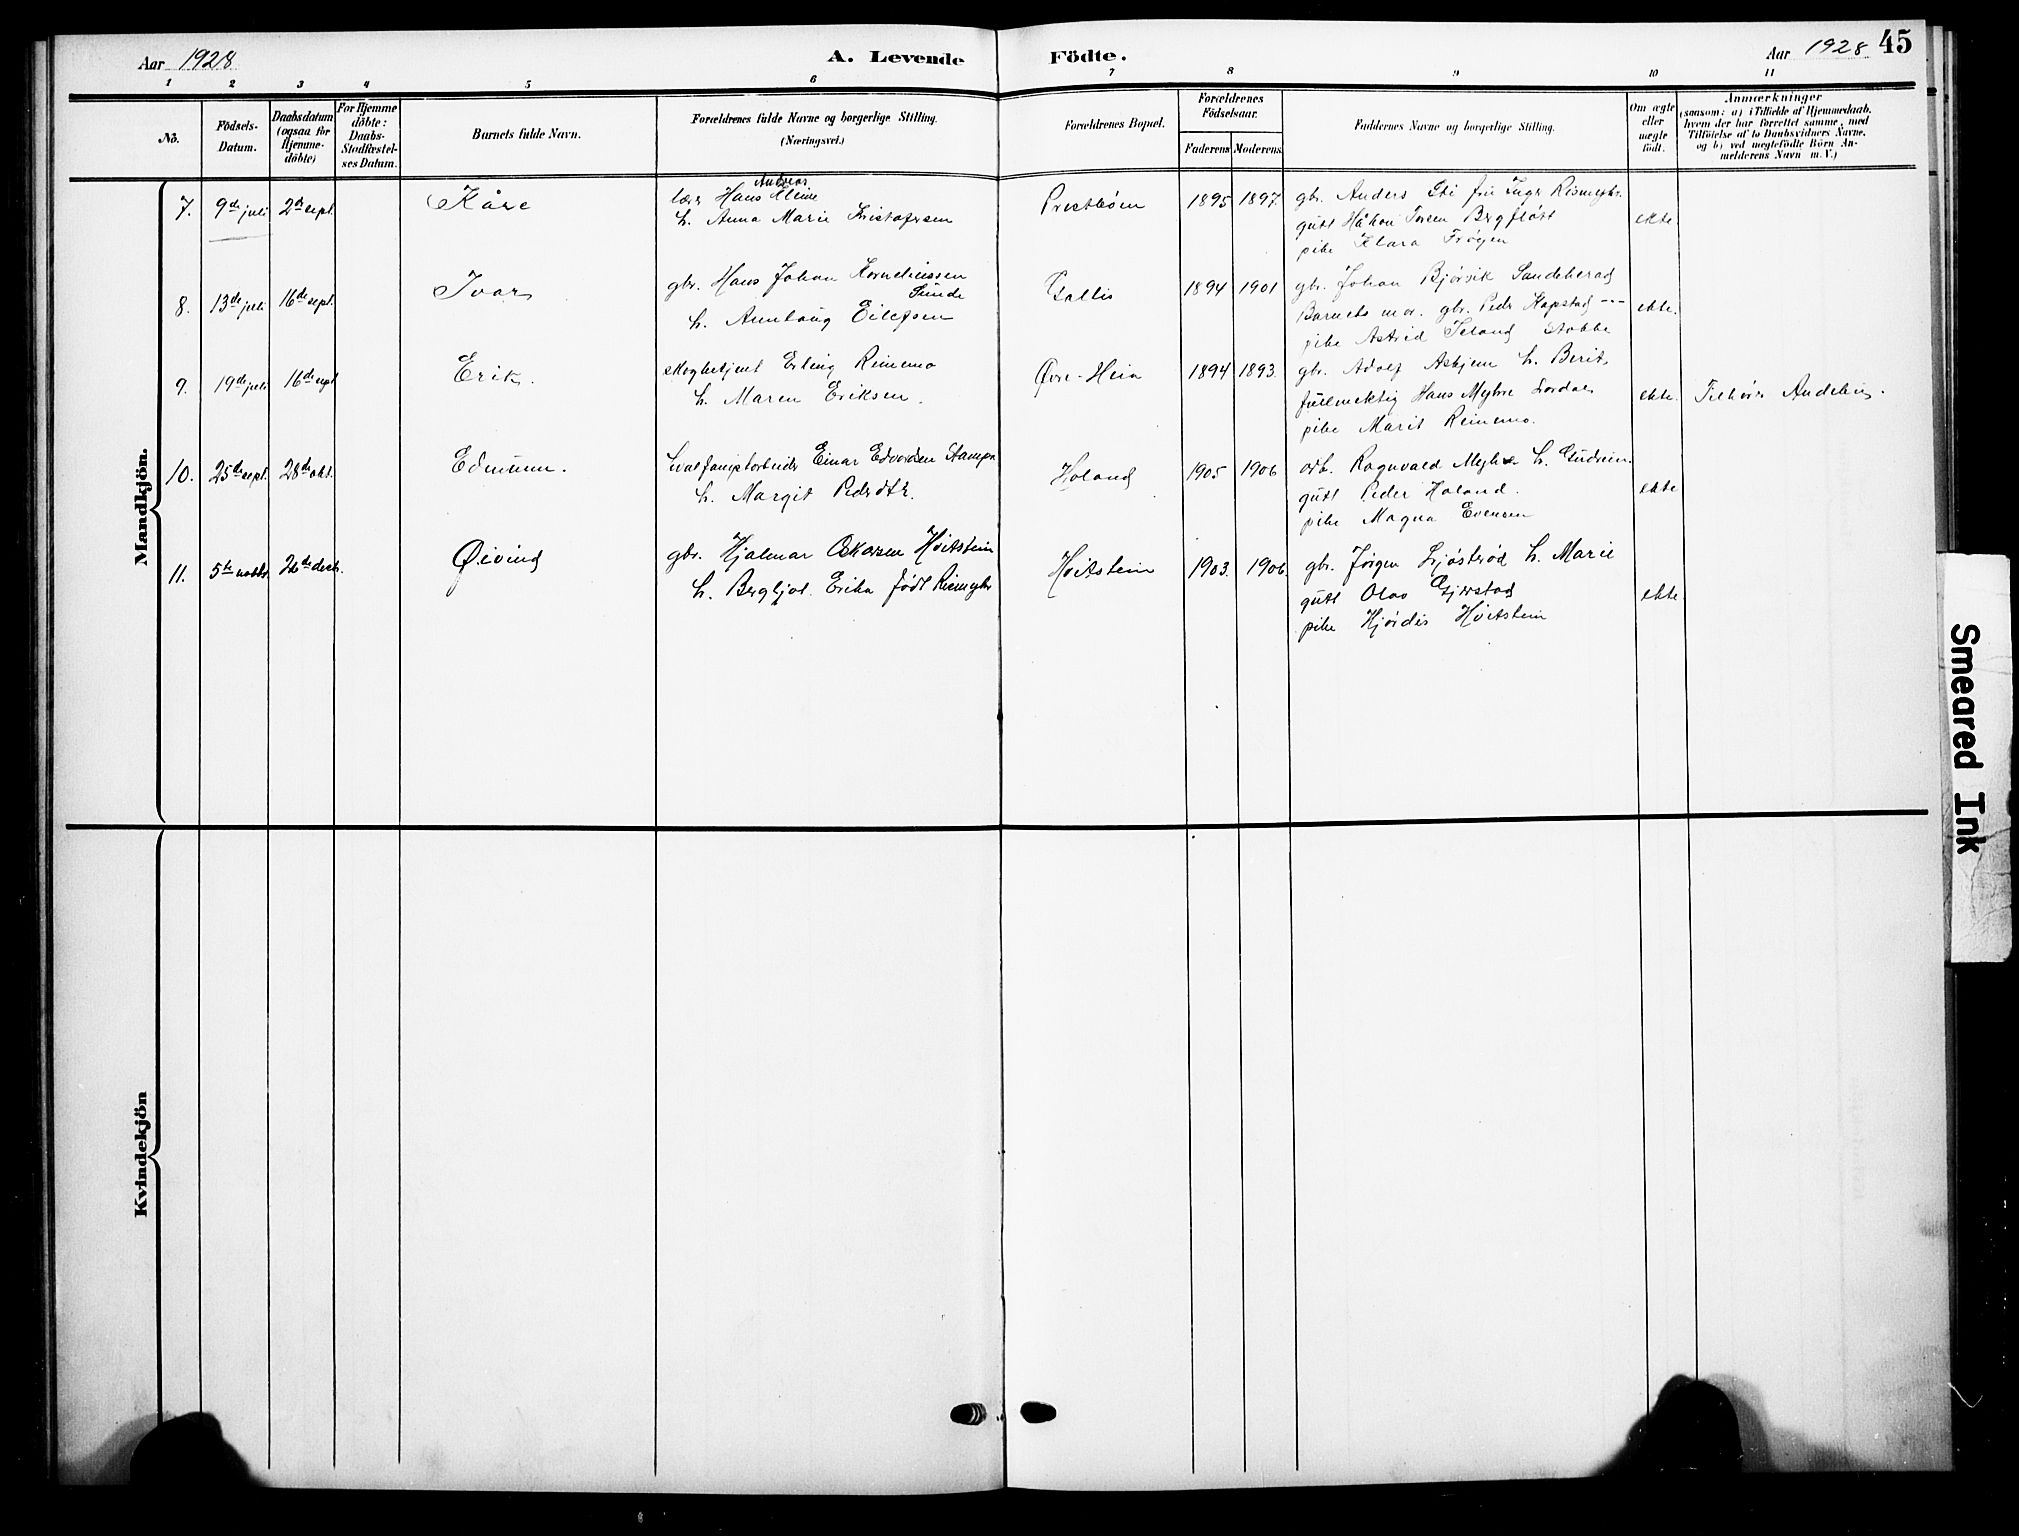 Aar 1928
A. Levende Födte.
Aar 1928 45
1 2 3 4 5 6 7 8 9 10 11
No.
Födsels-Datum.
Daabsdatum (ogsaa for Hjemme-döbte)
For Hjemme döbte: Daabs-Stadfæstel-ses Datum.
Barnets fulde Navn.
Forældrenes fulde Navne og borgerlige Stilling. (Næringsvei.)
Forældrenes Bopæl.
Forældrenes Födselsaar.
Faderens Moderens
Faddernes Navne og borgerlige Stilling.
Om ægte eller uægte födt.
Anmærkninger
(saasom: a) i Tilfælde af Hjemmedaab, hvem der har forrettet samme, med Tilföielse af to Daabsvidners Navne, og b) ved uægtefödte Börn An-melderens Navn m. V.)
Mandkjön.
7. 9de juli 2de sept. Kåre
lærer Hans Andreas Kleine
h. Anna Marie Kristofersen
Prestbøen 1895 1897.
gbr. Anders Sti fru Inger Rismyhr.
gutt Håkon Toren Bergfløtt
pike Klara Frøyen
ekte.
8. 13de juli 16de sept. Ivar
gbr. Hans Johan Korneliussen
Sunde
h. Annlaug Eilefsen
Gallis 1894 1901
gbr. Johan Bjørvik Sandeherad
Barnets mor. gbr. Peder Kopstad
pike Astrid Island Stokke
ekte.
9. 19de juli 16de sept Erik.
skogbetjent Erling Reinemo
h. Maren Eriksen.
Øvre-Heia 1894 1893.
gbr. Adolf Asbjern h. Berit,
fullmektig Hans Myhre
pike Marit Reinemo.
ekte. Tilhører Andebu.
10. 25de sept. 28de okt. Edmunn.
hvalfangstarbeider Einar Edvardsen
h. Margit Pedersdtr.
Holand 1905 1906
arb. Ragnvald Myhre h. Gudrun.
gutt Peder Holand.
pike Magna Evensen
ekte
11. 5te novbr. 26de decb. Øivind
gbr. Hjalmar Oskarsen Hvitstein
h. Bergljot Erika født Rismyhr
Hvitstein 1903. 1906.
gbr. Jørgen Ljøsterød h. Marie
gutt Olav Gjerstad
pike Hjørdis Hvitstein
ekte.
Kvindekjön
Smeared Ink